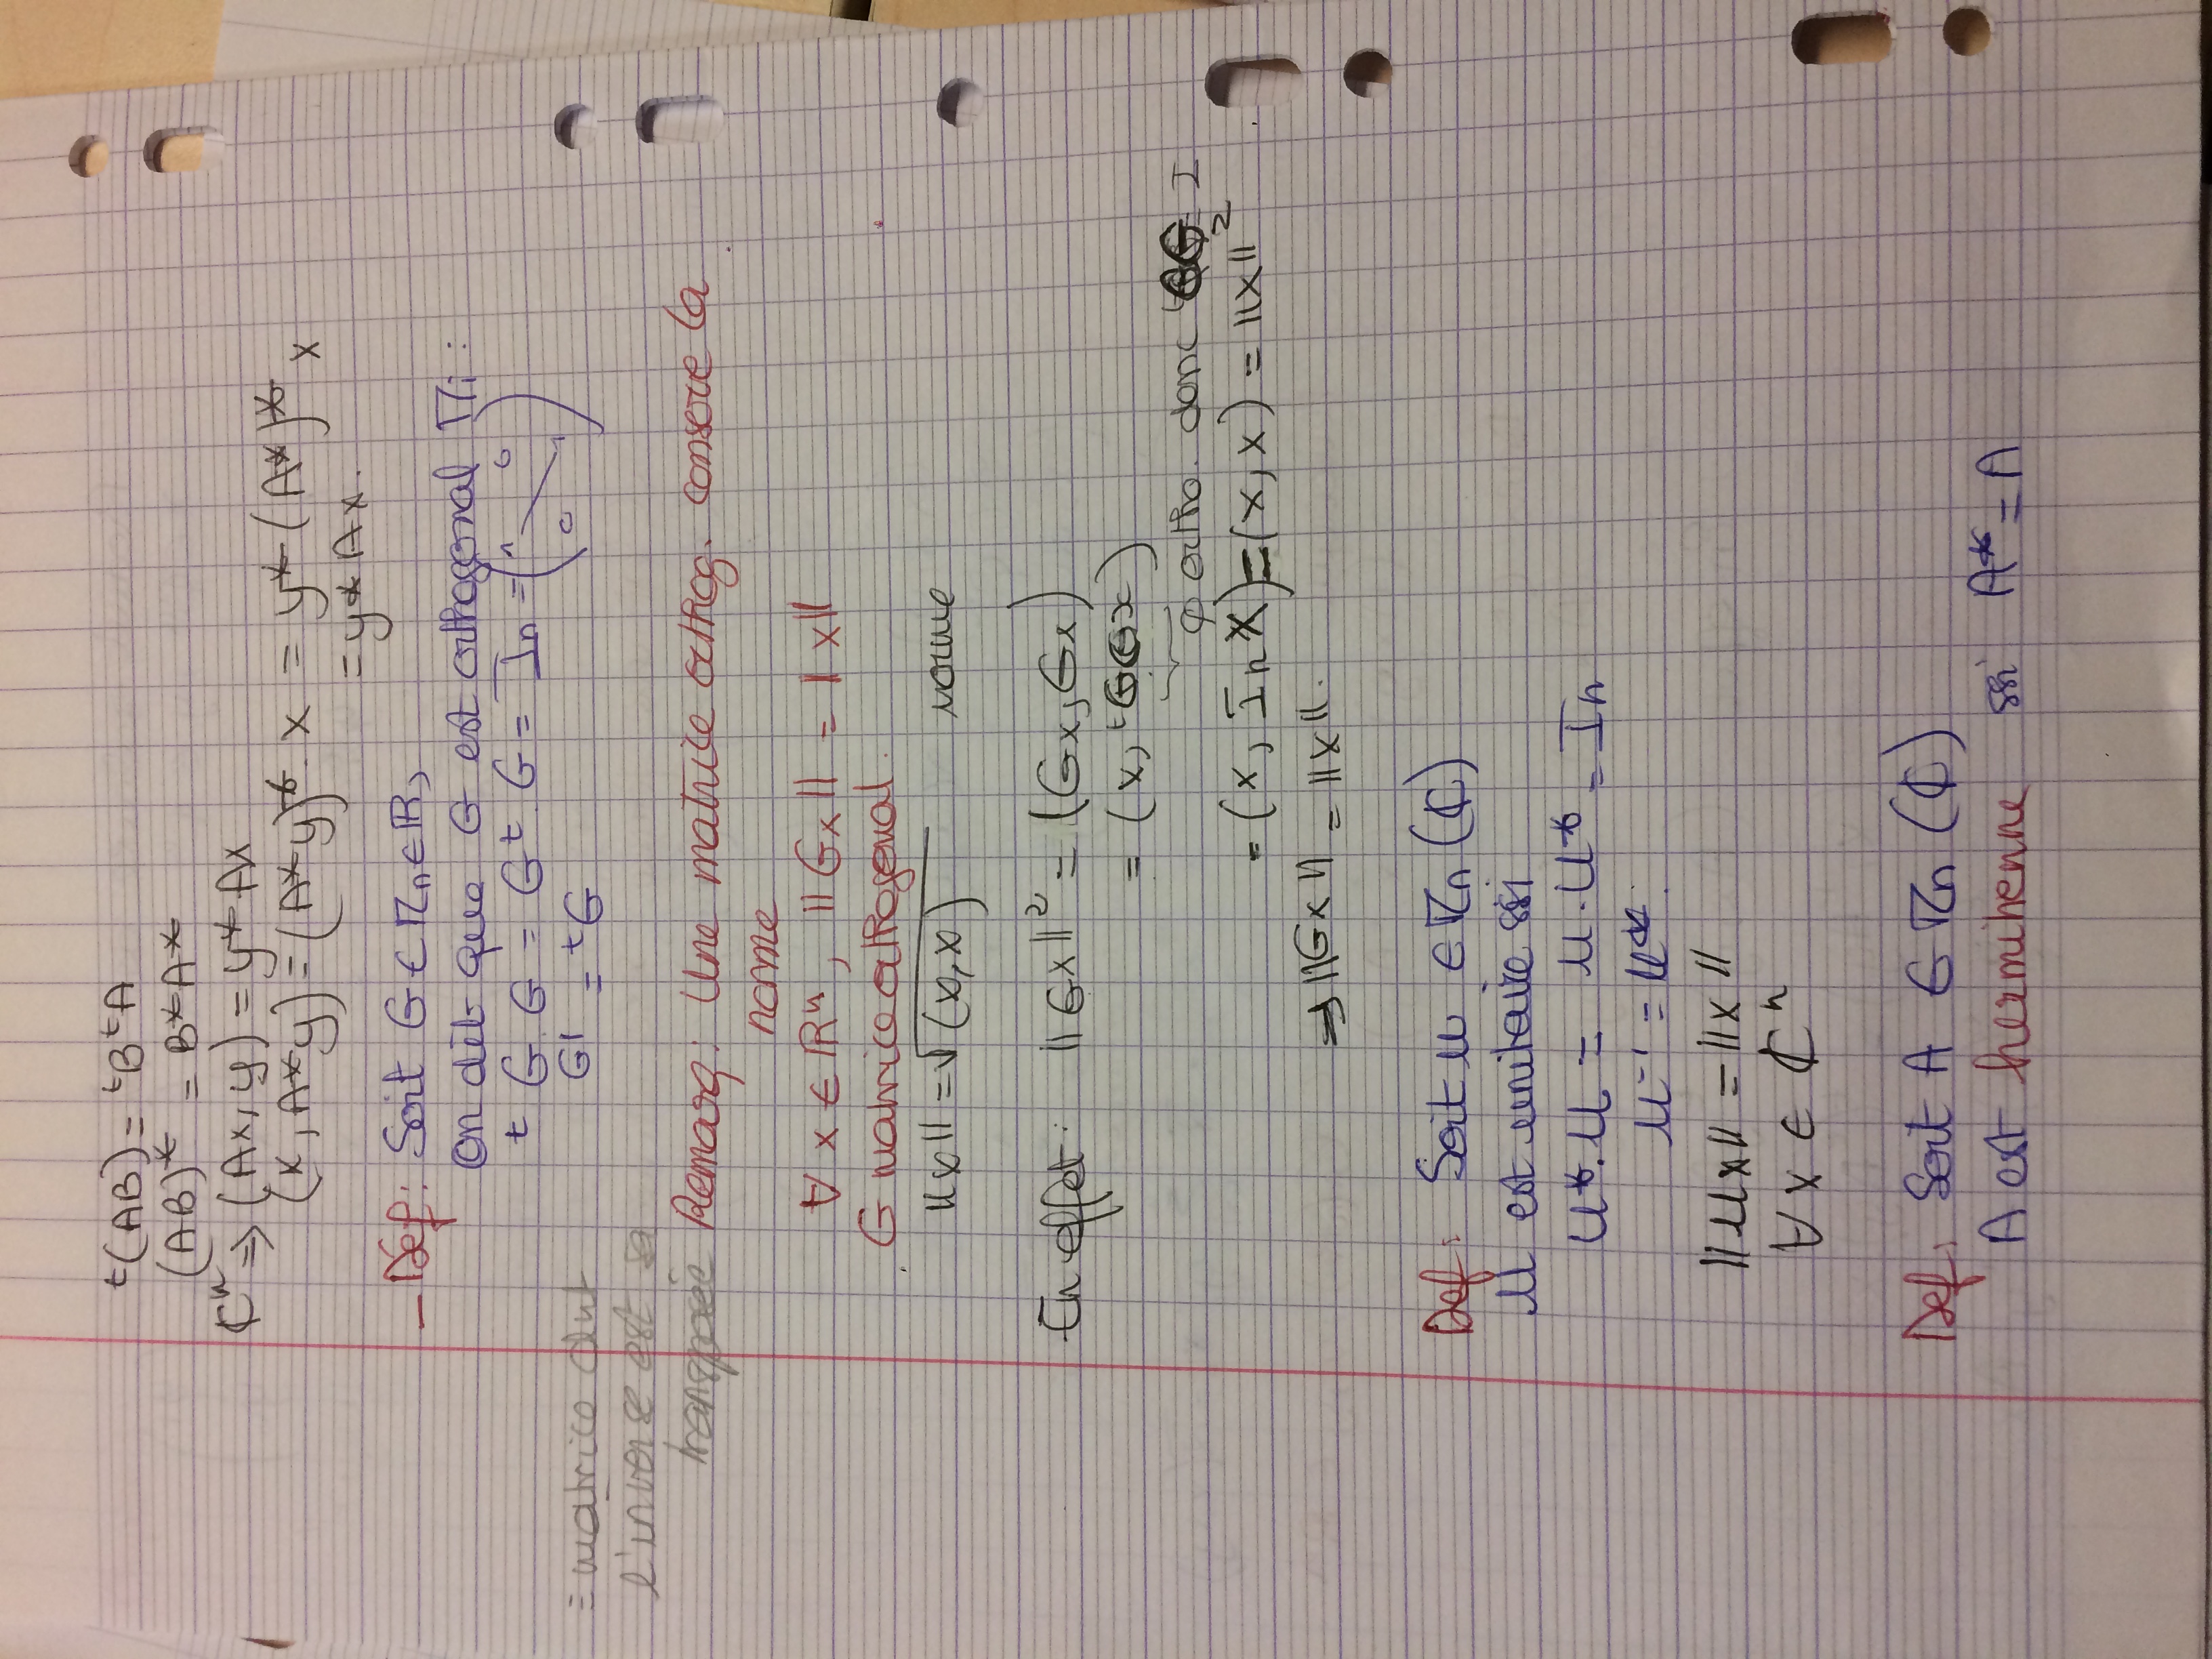 ᵗ(AB) = ᵗB ᵗA
(AB)* = B*A*
ℂⁿ ⇒ (Ax, y) = y* Ax
(x, A*y) = (A*y)* . x = y* (A*)* x
= y* Ax.
– Déf : Soit G ∈ Mn ∈ ℝ,
On dit que G est orthogonal si :
ᵗG . G = Gᵗ . G = In = (1 0 0 1)
G⁻¹ = ᵗG
= matrice dont
l'inverse est sa
transposée
Remarq : Une matrice orthog. conserve la
norme
∀ x ∈ ℝⁿ, ||Gx|| = ||x||
G matrice orthogonal.
||x|| = √(x,x) norme
En effet : ||Gx||² = (Gx, Gx)
= (x, ᵗGGx)
ortho. donc ᵗGG I
= (x, In x) = (x, x) = ||x||²
⇒ ||Gx|| = ||x||.
Def : Soit U ∈ Mn (ℂ)
U est unitaire ssi
U* . U = U . U* = In
U⁻¹ = U*.
||Ux|| = ||x||
∀ x ∈ ℂⁿ
Def : Soit A ∈ Mn (ℂ)
A est hermitienne ssi A* = A